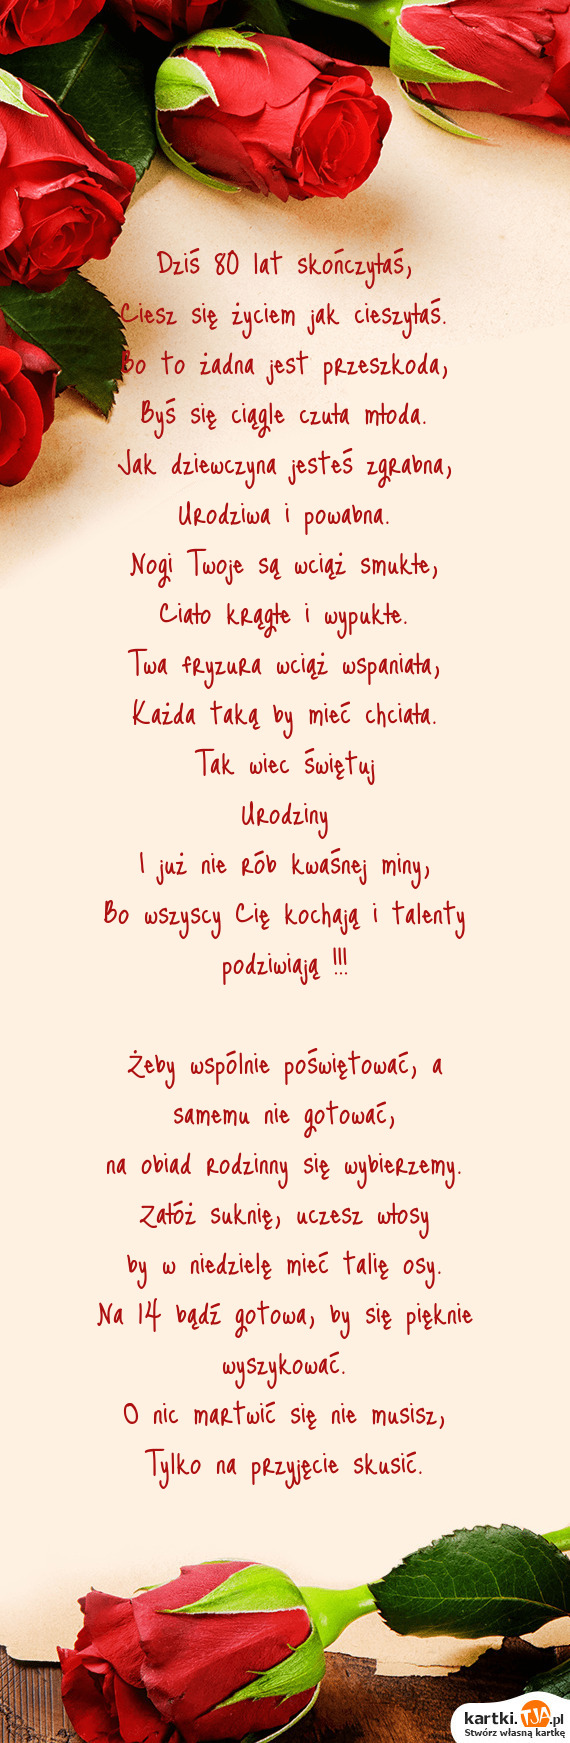 Dziś 80 lat skończyłaś,
Ciesz się życiem jak cieszyłaś.
Bo to żadna jest przeszkoda,
Byś się ciągle czuła młoda.
Jak dziewczyna jesteś zgrabna,
Urodziwa i powabna.
Nogi Twoje są wciąż smukłe,
Ciało krągłe i wypukłe.
Twa fryzura wciąż wspaniała,
Każda taką by mieć chciała.
Tak wiec świętuj
Urodziny
I już nie rób kwaśnej miny,
Bo wszyscy Cię kochają i talenty
podziwiają !!!
Żeby wspólnie poświętować, a
samemu nie gotować,
na obiad rodzinny się wybierzemy.
Załóż suknię, uczesz włosy
by w niedzielę mieć talię osy.
Na 14 bądź gotowa, by się pięknie
wyszykować.
O nic martwić się nie musisz,
Tylko na przyjęcie skusić.
kartki.TJA.pl
Stwórz własną kartkę